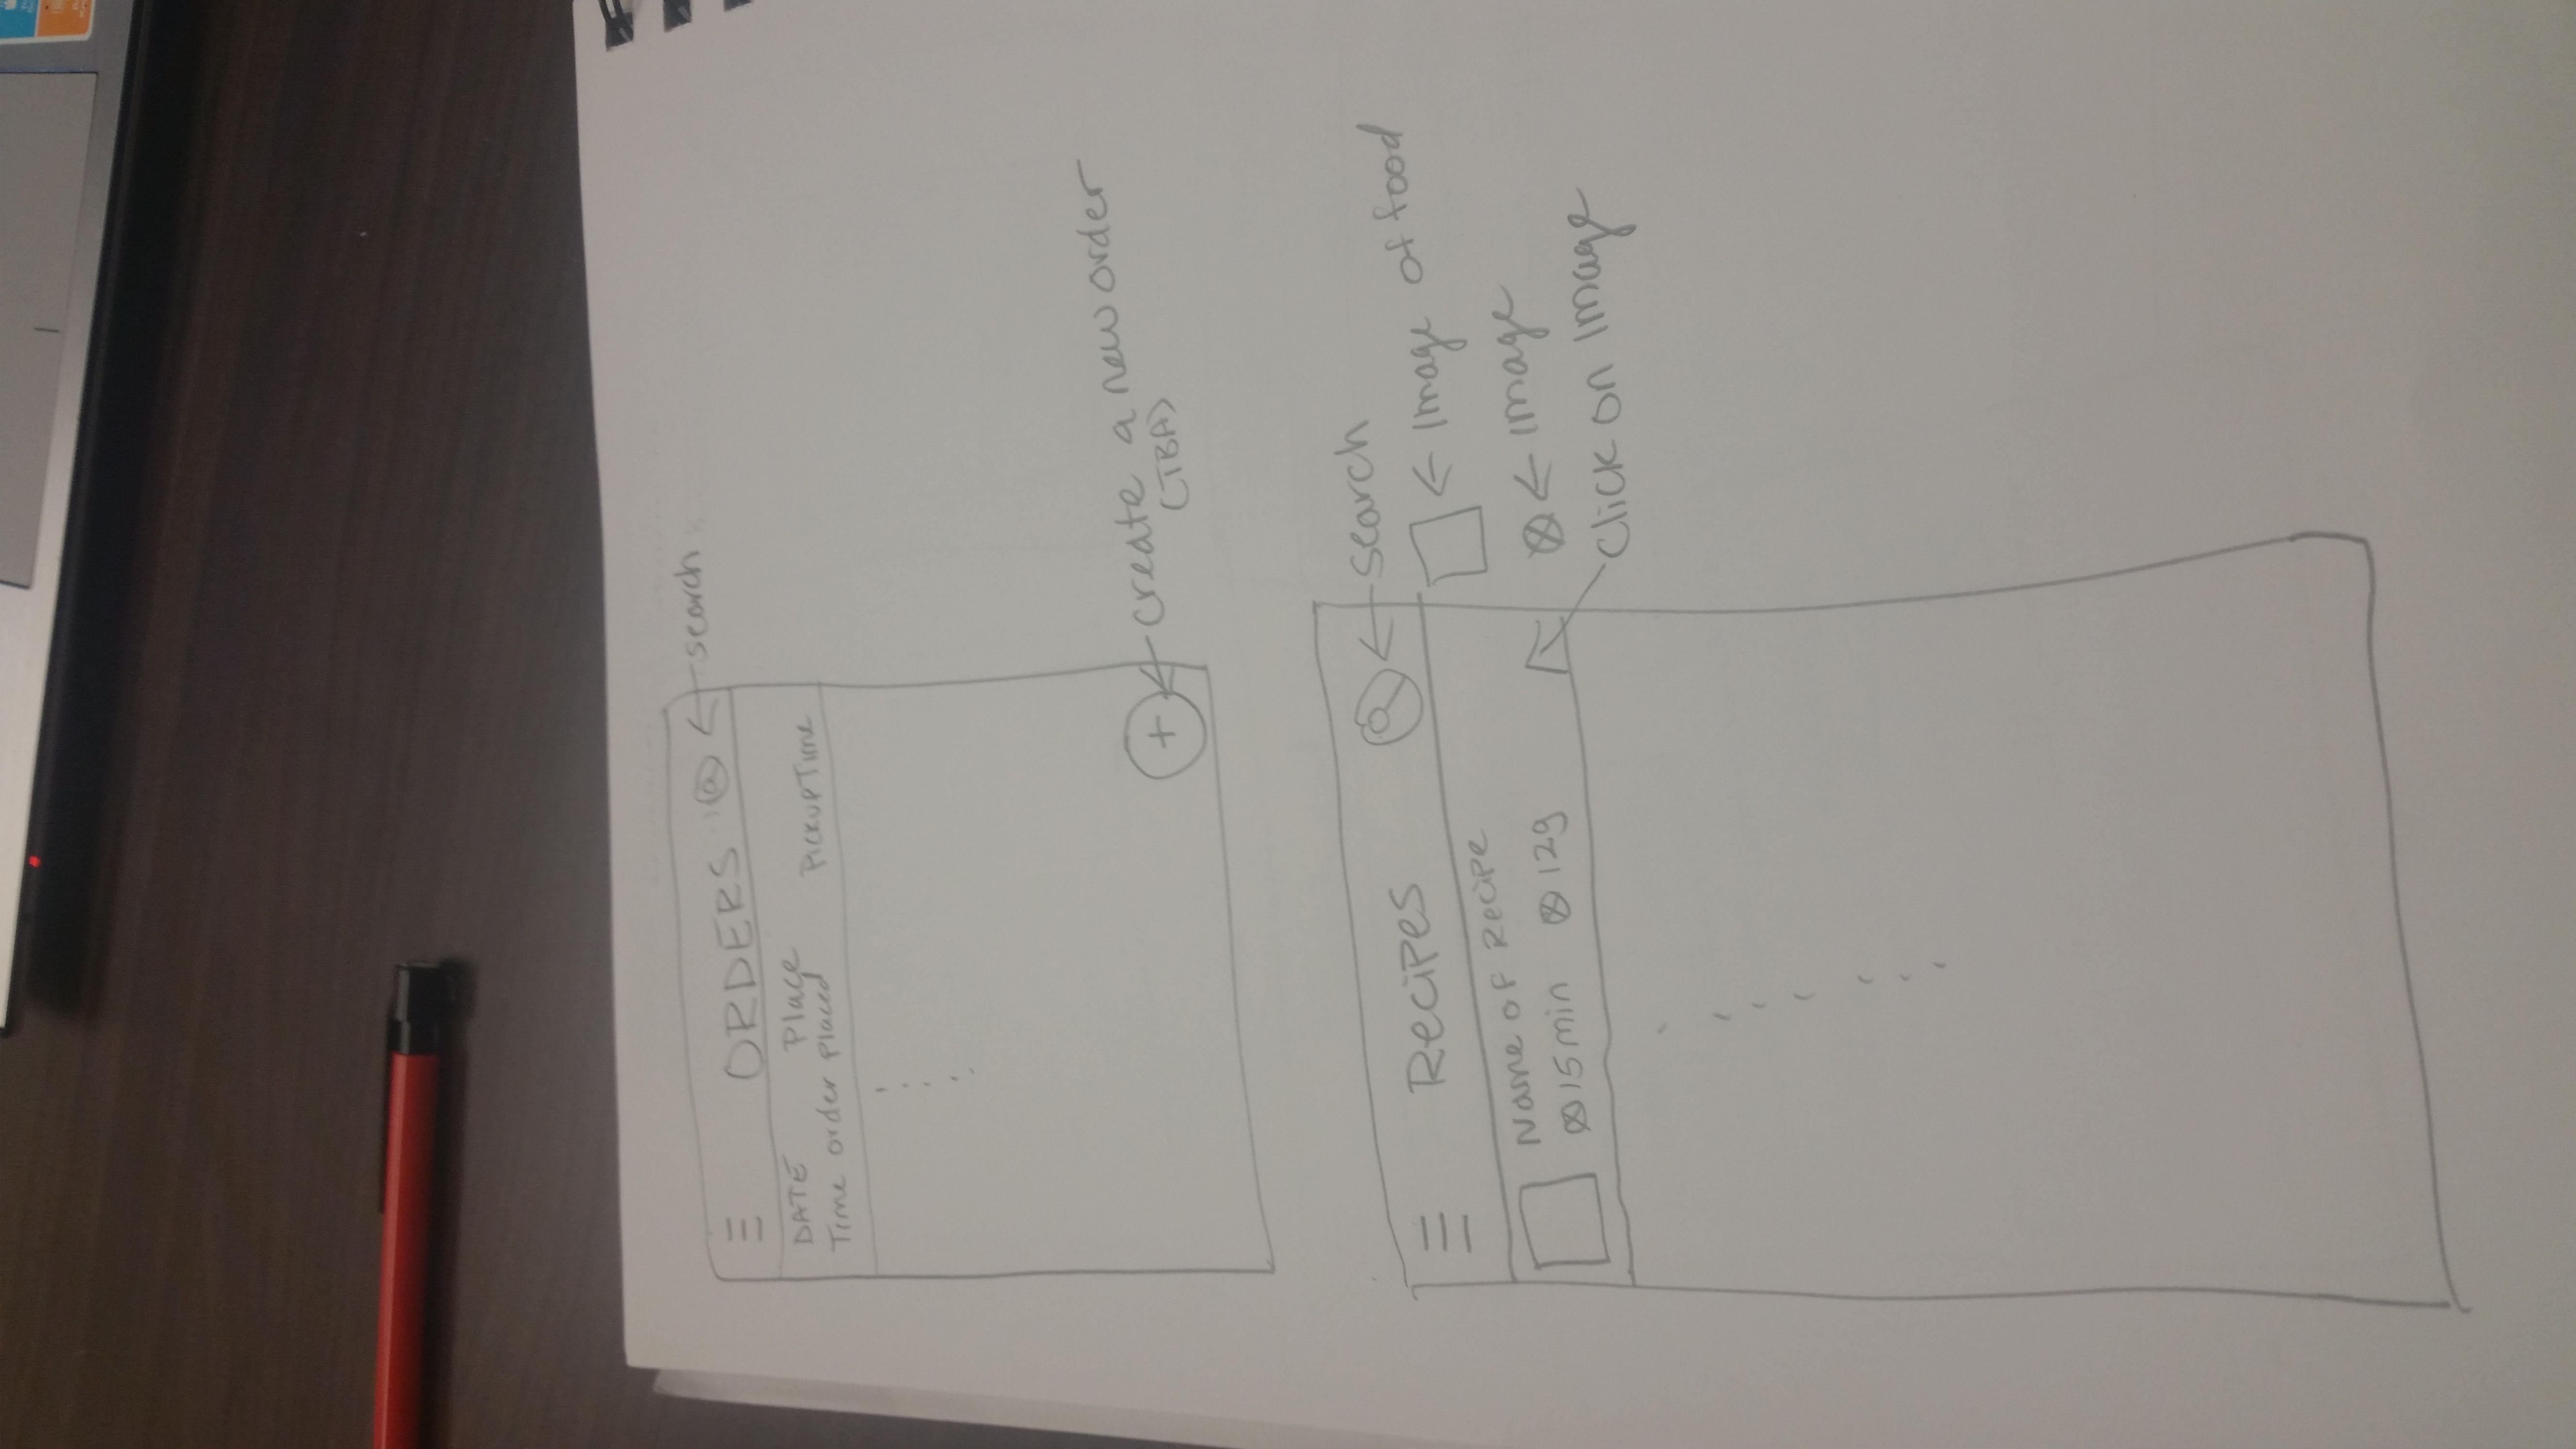 ORDERS
search
DATE Place
Time order placed PickupTime
+ create a new order
(TBA)
Recipes
search
Image of food
Name of Recipe
15min 12g
Image
Click on Image